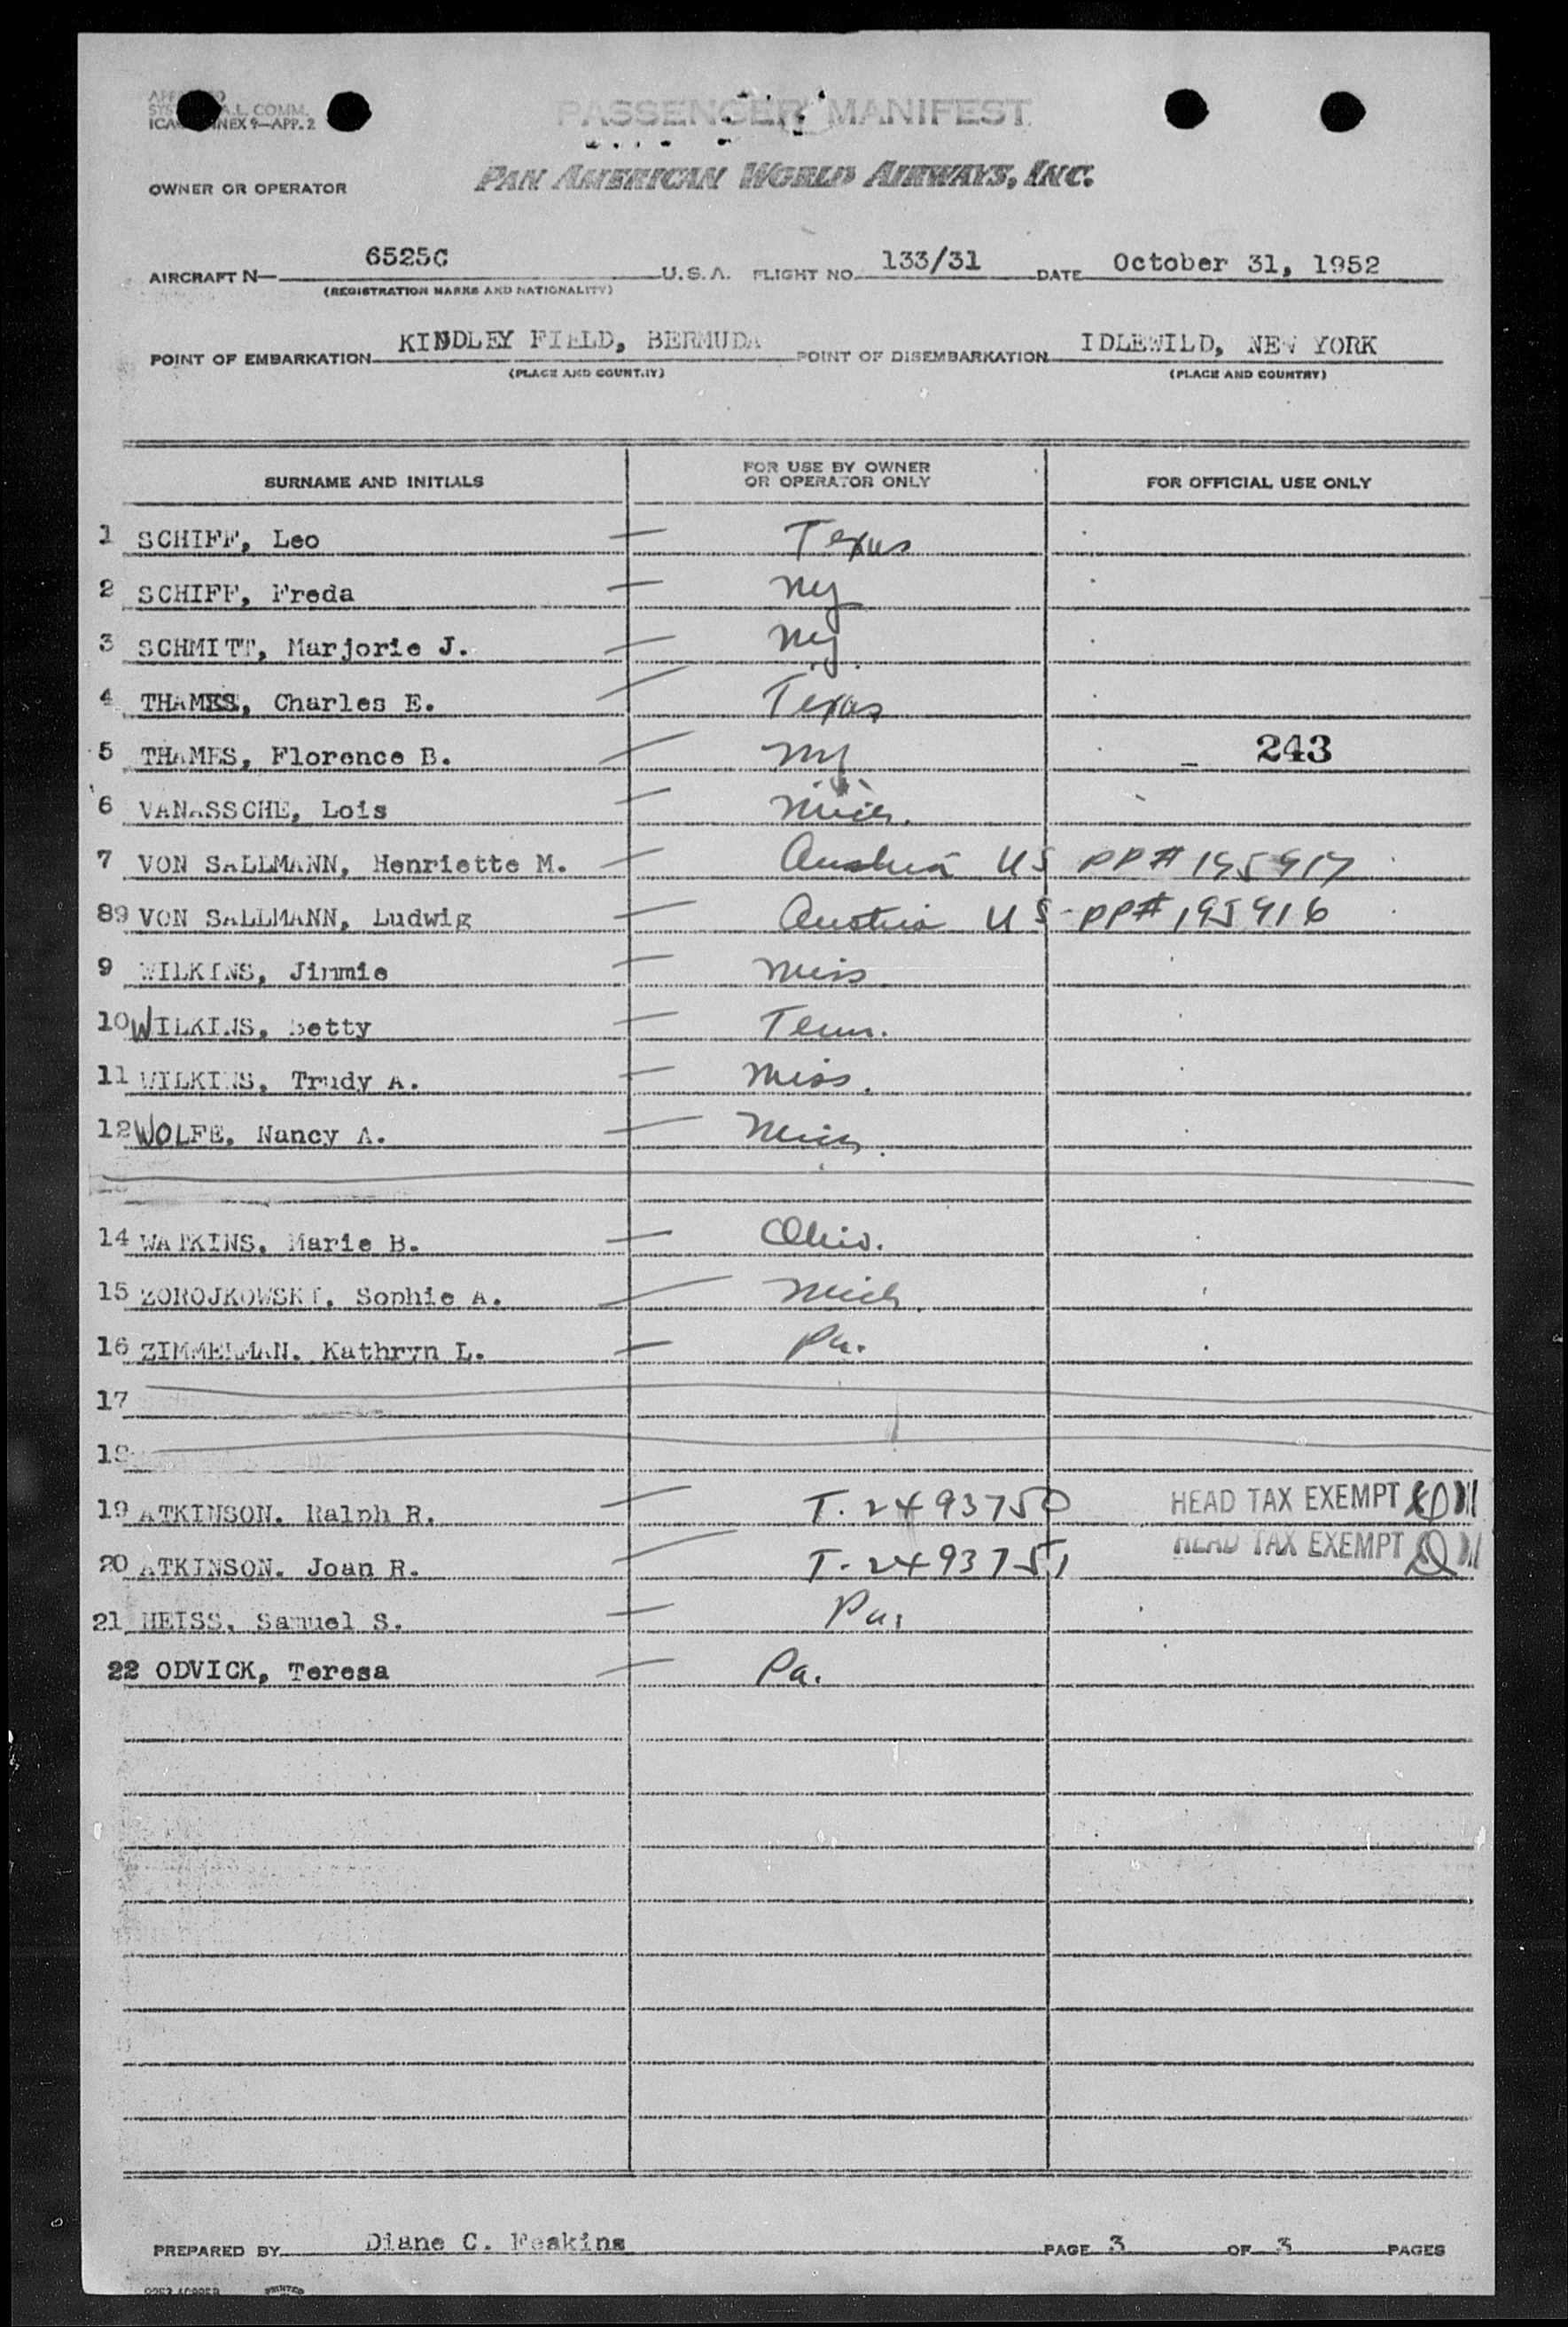 SYS A.L. COMM.
ICA NNEX 9—APP. 2
PASSENGER MANIFEST
OWNER OR OPERATOR PAN AMERICAN WORLD AIRWAYS, INC.
AIRCRAFT N— 6525C U.S.A. FLIGHT NO. 133/31 DATE October 31, 1952
(REGISTRATION MARKS AND NATIONALITY)
POINT OF EMBARKATION KINDLEY FIELD, BERMUDA POINT OF DISEMBARKATION IDLEWILD, NEW YORK
(PLACE AND COUNTRY) (PLACE AND COUNTRY)
SURNAME AND INITIALS FOR USE BY OWNER OR OPERATOR ONLY FOR OFFICIAL USE ONLY
1 SCHIFF, Leo — Texas
2 SCHIFF, Freda — Ny
3 SCHMITT, Marjorie J. — Ny
4 THAMES, Charles E. — Texas
5 THAMES, Florence B. — Ny 243
6 VANASSCHE, Lois — Mich.
7 VON SALLMANN, Henriette M. — Austria US PP# 195917
89 VON SALLMANN, Ludwig — Austria US PP# 195916
9 WILKINS, Jimmie — Miss
10 WILKINS, Betty — Tenn.
11 WILKINS, Trudy A. — Miss.
12 WOLFE, Nancy A. — Mich.
14 WATKINS, Marie B. — Ohio.
15 ZOROJKOWSKI, Sophie A. — Mich.
16 ZIMMERMAN, Kathryn L. — Pa.
17
18
19 ATKINSON, Ralph R. — T-2493750 HEAD TAX EXEMPT
20 ATKINSON, Joan R. — T-2493751 HEAD TAX EXEMPT
21 HEISS, Samuel S. — Pa.
22 ODVICK, Teresa — Pa.
PREPARED BY Diane C. Feakins PAGE 3 OF 3 PAGES
PRINTED